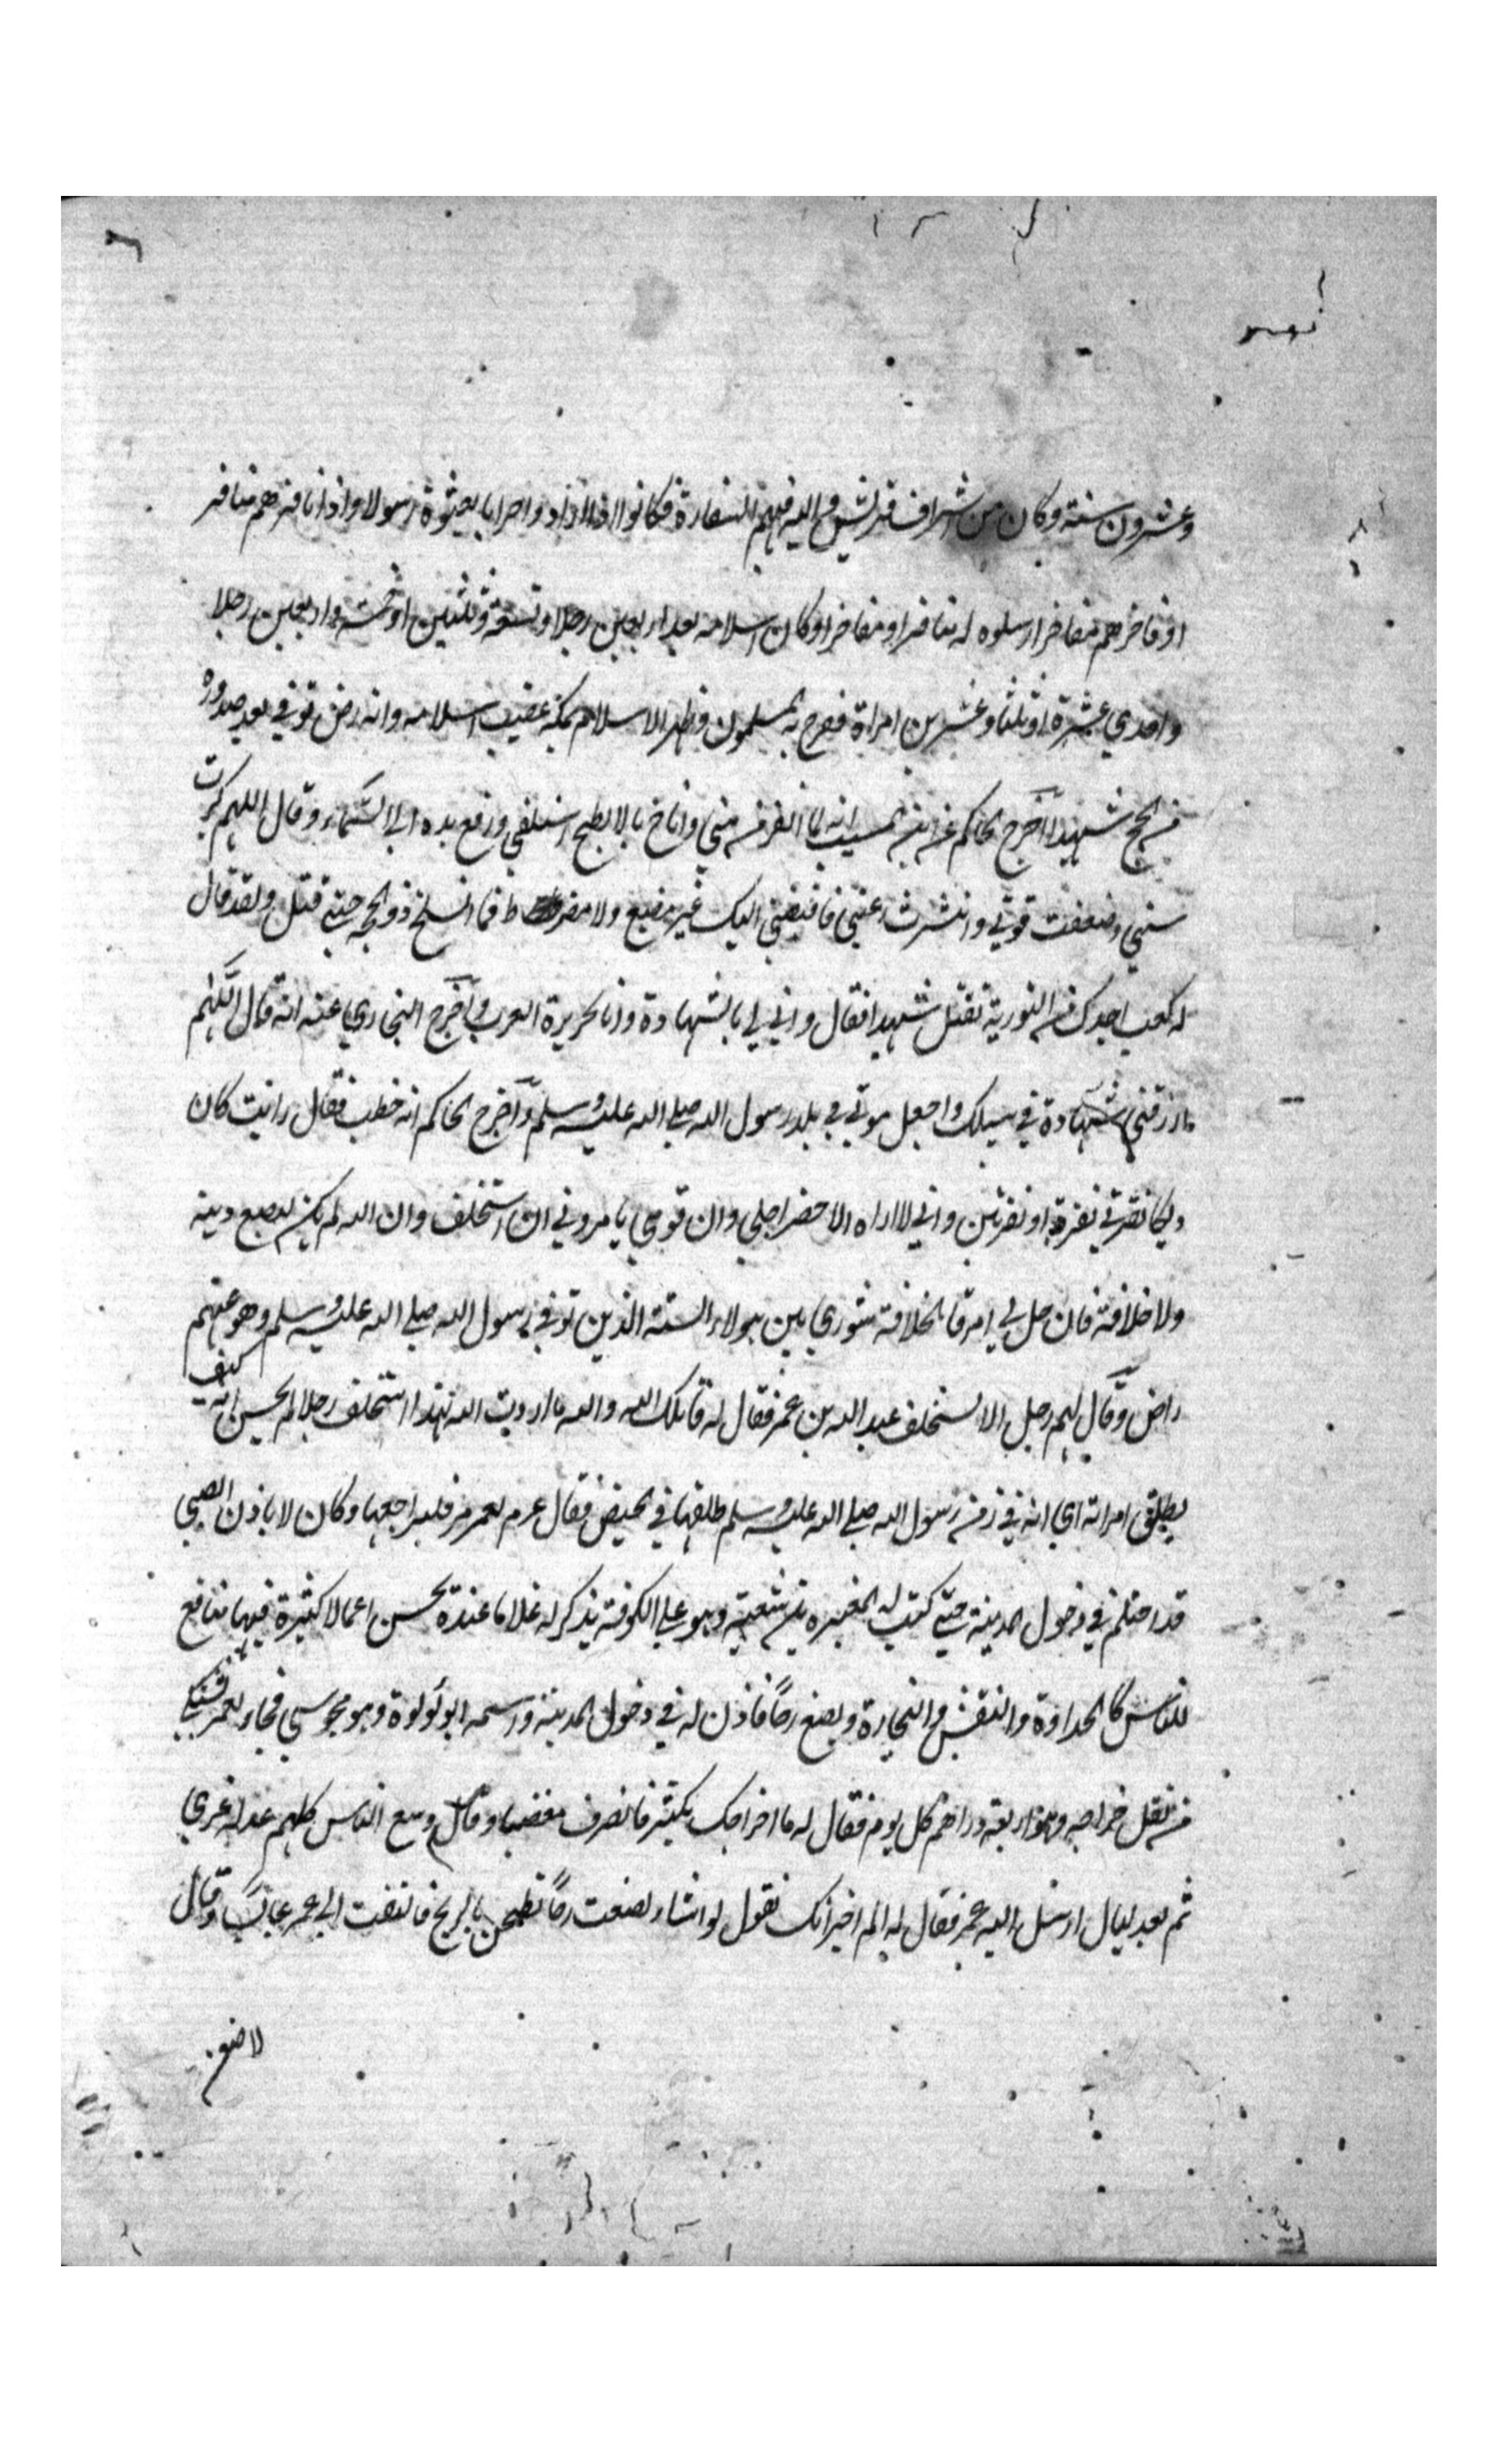 وعشرون سنة وكان من اشراف قريش واليه فيهم السفارة فكانوا اذا ارادوا حربا بعثوه رسولا واذا نافرهم منافر
او فاخرهم مفاخر ارسلوه له منافرا ومفاخرا وكان اسلامه بعد اربعين رجلا او تسعة وثلثين او خمسة واربعين رجلا
واحدي عشرة او ثلثا وعشرين امراة ففرح به المسلمون وظهر الاسلام بمكة عقيب اسلامه وانه رض توفي بعد صدوره
من الحج شهيدا اخرج الحاكم عن ابن المسيب انه لما نفر من مني واناخ بالابطح استلقي ورفع يده الي السماء وقال اللهم كبرت
سني وضعفت قوتي وانتشرت رعيتي فاقبضني اليك غير مضيع ولا مفرط فما انسلخ ذو الحجة حتي قتل ولقد قال
له كعب اجدك في التورية تقتل شهيدا فقال واني لي بالشهادة وانا بجزيرة العرب واخرج البخاري عنه انه قال اللهم
ارزقني شهادة في سبيلك واجعل موتي في بلد رسول الله صلي الله عليه وسلم واخرج الحاكم انه خطب فقال رايت كان
ديكا نقرني نقرة او نقرتين واني لا اراه الا حضر اجلي وان قومي يامروني ان استخلف وان الله لم يكن ليضيع دينه
ولا خلافته فان حل بي امر فالخلافة شوري بين هولاء الستة الذين توفي رسول الله صلي الله عليه وسلم وهو عنهم
راض وقال لهم رجل الا تستخلف عبد الله بن عمر فقال له قاتلك الله والله ما اردت الله بهذا استخلف رجلا لم يحسن ان كيف
يطلق امراته اي انه في زمن رسول الله صلي الله عليه وسلم طلقها في الحيض فقال عم لعمر مره فليراجعها وكان لا ياذن لصبي
قد احتلم في دخول المدينة حتي كتب له المغيره بن شعبة وهو علي الكوفة يذكر له غلاما عنده يحسن اعمالا كثيرة فيها منافع
للناس كالحدادة والنقش والنجارة ويصنع رحا فاذن له في دخول المدينة واسمه ابو لولوة وهو مجوسي فجاء لعمر يشتكي
من ثقل خراجه وهو اربعة دراهم كل يوم فقال له ما خراجك بكثير فانصرف مغضبا وقال وسع الناس كلهم عدله غيري
ثم بعد ليال ارسل اليه عمر فقال له الم اخبر انك تقول لو اشاء لصنعت رحا تطحن بالريح فالتفت الي عمر عابسا وقال
لاصنعن